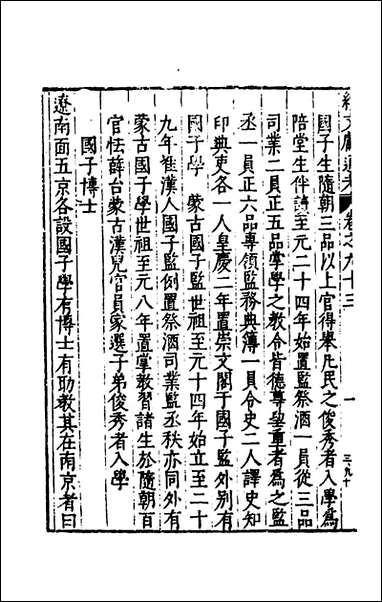 續文獻通考 卷之九十三 一 三九十
國子生隨朝三品以上官得舉凡民之俊秀者入學爲
陪堂生伴讀至元二十四年始置監祭酒一員從三品
司業二員正五品掌學之教令皆德尊望重者爲之監
丞一員正六品專領監務典簿一員令史二人譯史知
印典吏各一人皇慶二年置崇文閣于國子監外別有
國子學　蒙古國子監世祖至元十四年始立至二十
九年准漢人國子監例置祭酒司業監丞秩亦同外有
蒙古國子學世祖至元八年置掌教習諸生於隨朝百
官怯薛台蒙古漢兒官員家選子弟俊秀者入學
國子博士
遼南面五京各設國子學有博士有助教其在南京者曰